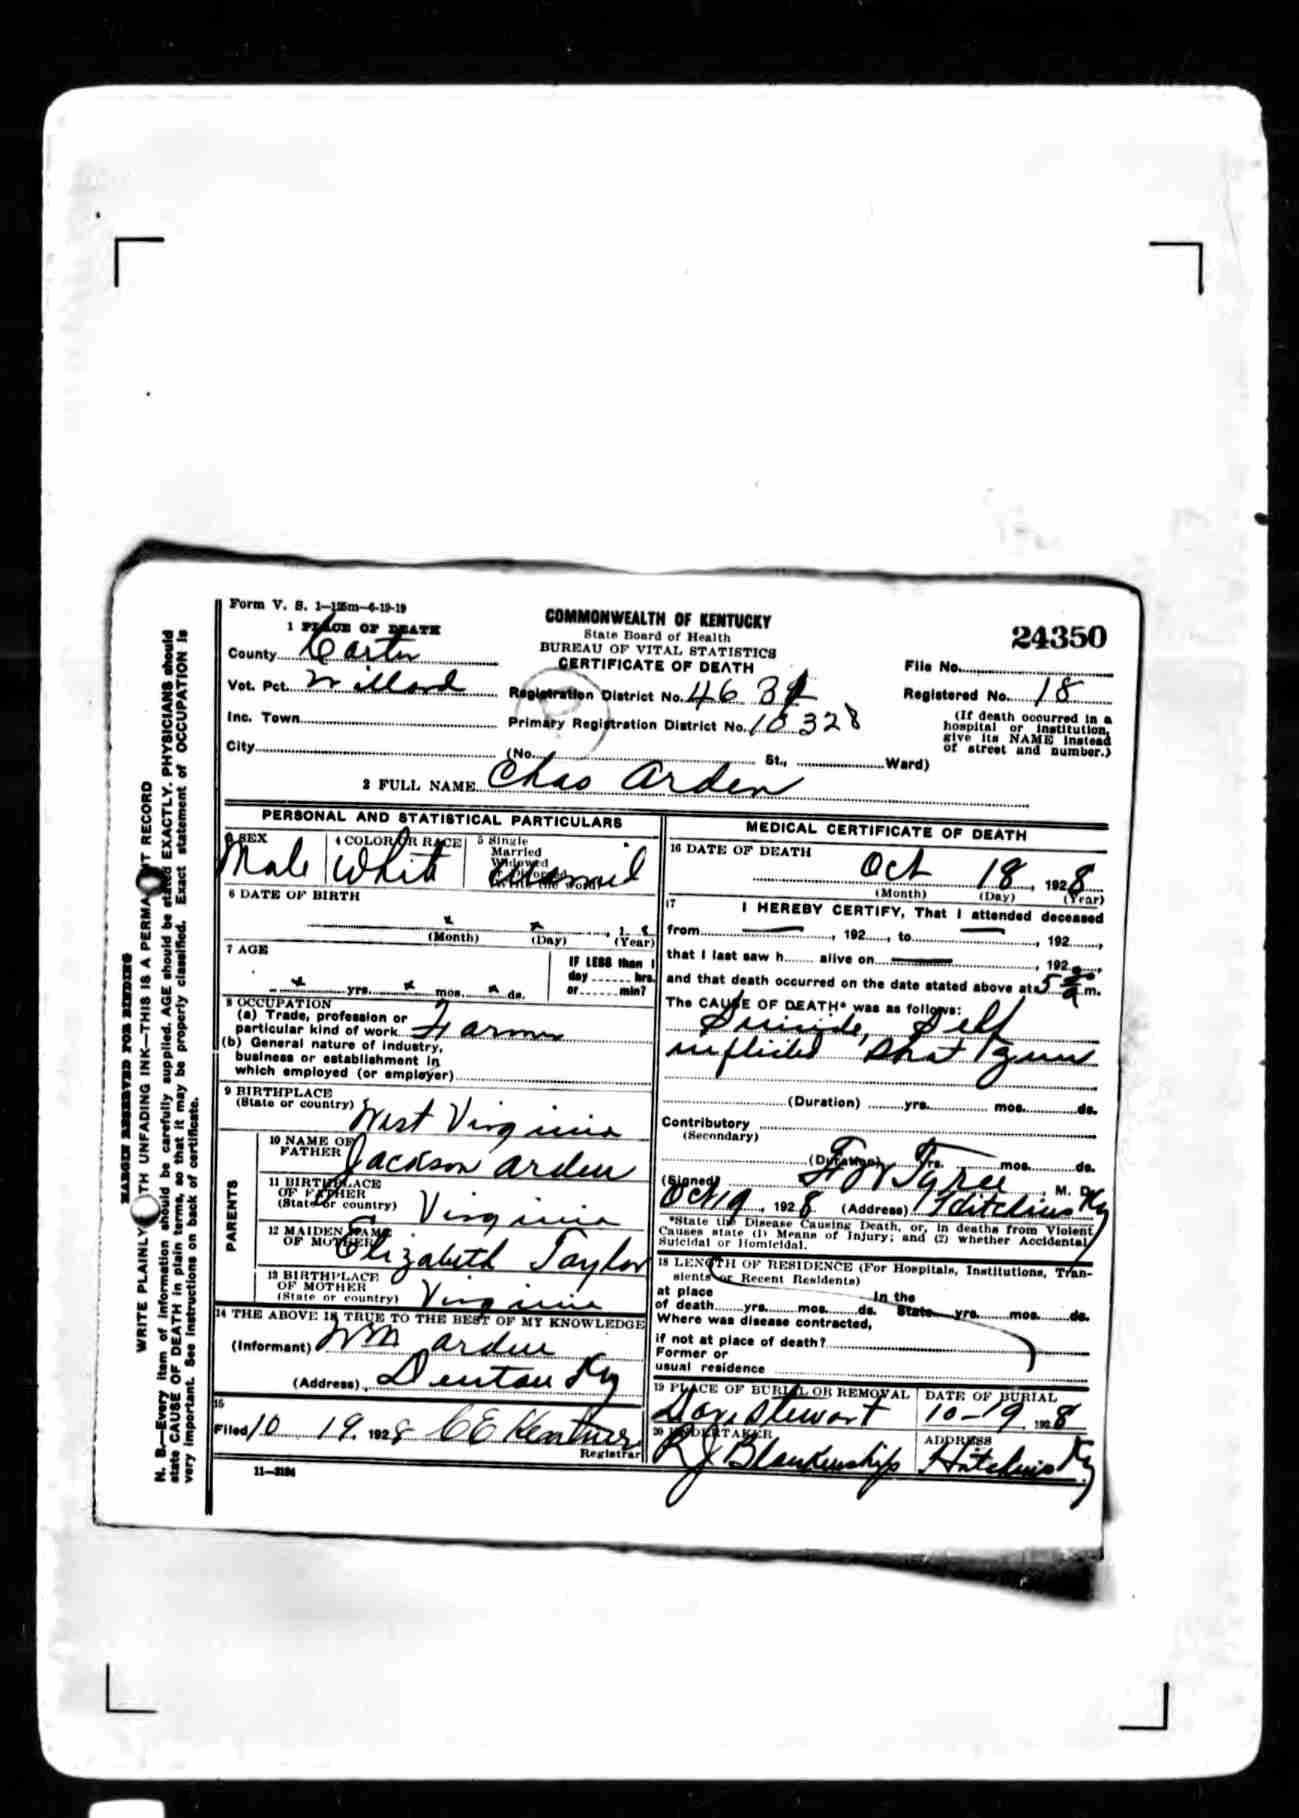 Form V. S. 1—125m—6-19-19
1 PLACE OF DEATH
County Carter
Vot. Pct. Willard
Inc. Town
City
COMMONWEALTH OF KENTUCKY
State Board of Health
BUREAU OF VITAL STATISTICS
CERTIFICATE OF DEATH
Registration District No. 463
Primary Registration District No. 10328
(No. St., Ward)
24350
File No.
Registered No. 18
(If death occurred in a
hospital or institution,
give its NAME instead
of street and number.)
2 FULL NAME Chas Arden
PERSONAL AND STATISTICAL PARTICULARS
3 SEX
Male
4 COLOR OR RACE
White
5 Single
Married
Widowed
or Divorced
(Write the word)
6 DATE OF BIRTH
(Month) (Day) (Year)
7 AGE
yrs. mos. ds.
IF LESS than 1
day hrs.
or min?
8 OCCUPATION
(a) Trade, profession or
particular kind of work Farmer
(b) General nature of industry,
business or establishment in
which employed (or employer)
9 BIRTHPLACE
(State or country) West Virginia
PARENTS
10 NAME OF
FATHER Jackson Arden
11 BIRTHPLACE
OF FATHER
(State or country) Virginia
12 MAIDEN NAME
OF MOTHER Elizabeth Taylor
13 BIRTHPLACE
OF MOTHER
(State or country) Virginia
14 THE ABOVE IS TRUE TO THE BEST OF MY KNOWLEDGE
(Informant) Wm Arden
(Address) Denton Ky
15
Filed 10 19, 1928 C E Registrar
11—3184
MEDICAL CERTIFICATE OF DEATH
16 DATE OF DEATH
Oct 18, 1928
(Month) (Day) (Year)
17
I HEREBY CERTIFY, That I attended deceased
from , 192 , to , 192 ,
that I last saw h alive on , 192 ,
and that death occurred on the date stated above at 5 a m.
The CAUSE OF DEATH* was as follows:
Suicide, Self
inflicted Shot gun
(Duration) yrs. mos. ds.
Contributory
(Secondary)
(Duration) yrs. mos. ds.
(Signed) F W Tyree, M. D.
Oct 19, 1928 (Address) Hitchins Ky
*State the Disease Causing Death, or, in deaths from Violent
Causes state (1) Means of Injury; and (2) whether Accidental,
Suicidal or Homicidal.
18 LENGTH OF RESIDENCE (For Hospitals, Institutions, Tran-
sients or Recent Residents)
at place In the
of death yrs. mos. ds. State yrs. mos. ds.
Where was disease contracted,
if not at place of death?
Former or
usual residence
19 PLACE OF BURIAL OR REMOVAL
Stewart
DATE OF BURIAL
10-19, 1928
20 UNDERTAKER
R J Blankenship
ADDRESS
Hitchins Ky
MARGIN RESERVED FOR BINDING
WRITE PLAINLY WITH UNFADING INK—THIS IS A PERMANENT RECORD
N. B.—Every item of information should be carefully supplied. AGE should be stated EXACTLY. PHYSICIANS should
state CAUSE OF DEATH in plain terms, so that it may be properly classified. Exact statement of OCCUPATION is
very important. See instructions on back of certificate.